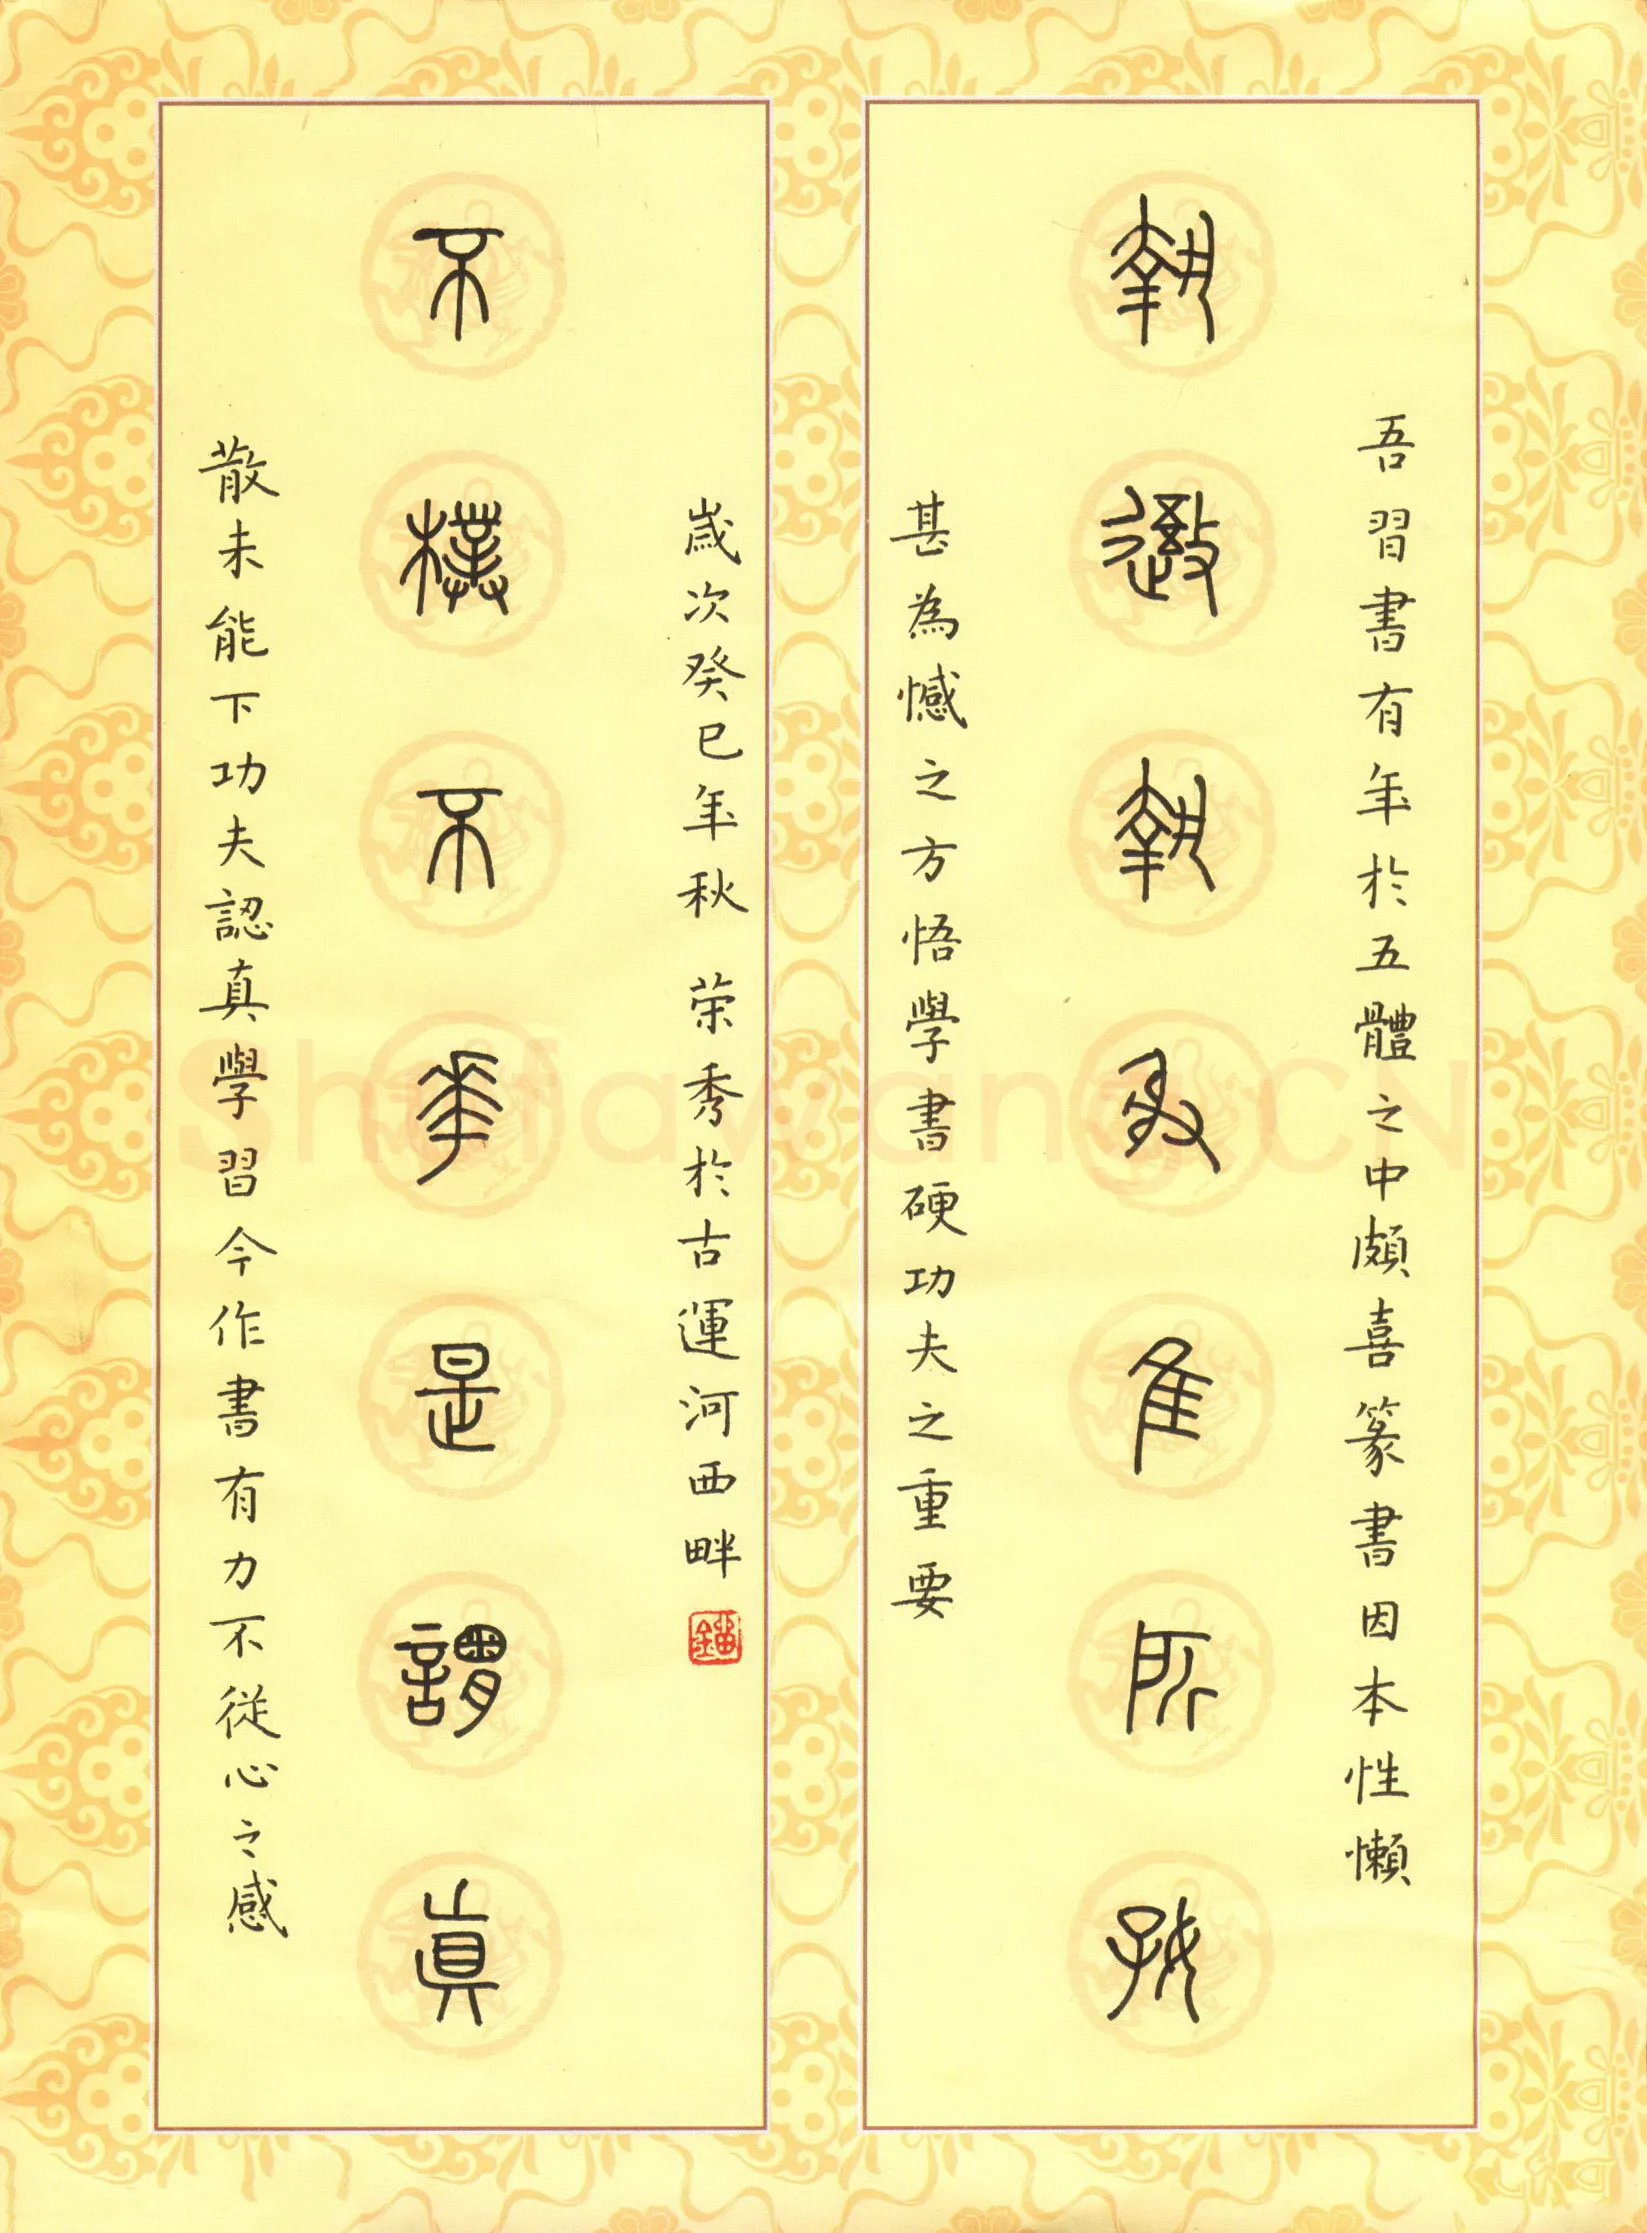 執執隹所好
不樸不華是謂真
吾習書有年於五體之中頗喜篆書因本性懶
散未能下功夫認真學習今作書有力不從心之感
甚為憾之方悟學書硬功夫之重要
歲次癸巳年秋 荣秀於古運河西畔
Shufawang.CN